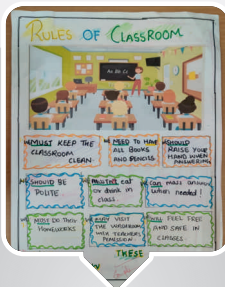 RULES OF CLASSROOM
WE MUST KEEP THE
CLASSROOM
CLEAN
WE NEED TO HAVE
ALL BOOKS
AND PENCILS
WE SHOULD
RAISE YOUR
HAND WHEN
ANSWERING
WE SHOULD BE
POLITE
MUSTN'T eat
or drink in
class
WE can
when needed!
MUST DO THEIR
HOMEWORKS
MAY VISIT
THE WASHROOM
WITH TEACHERS
PERMISSION
WILL FEEL FREE
AND SAFE IN
CLASSES
THESE